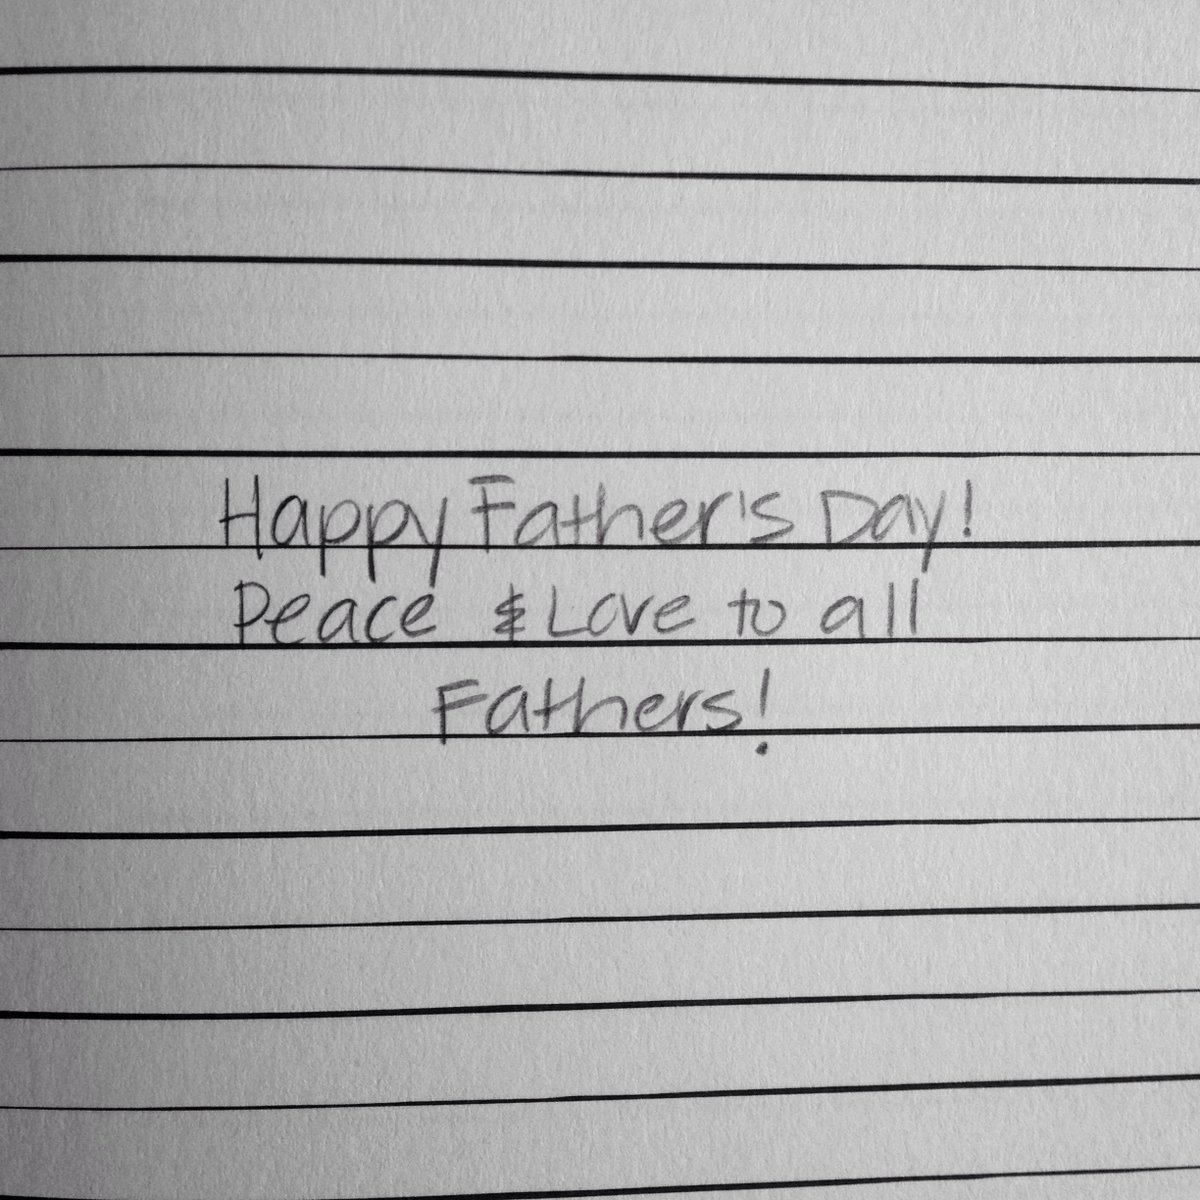 Happy Father's Day!
Peace & Love to all
Fathers!